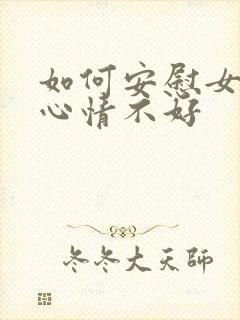 如何安慰女
心情不好
冬冬大天师